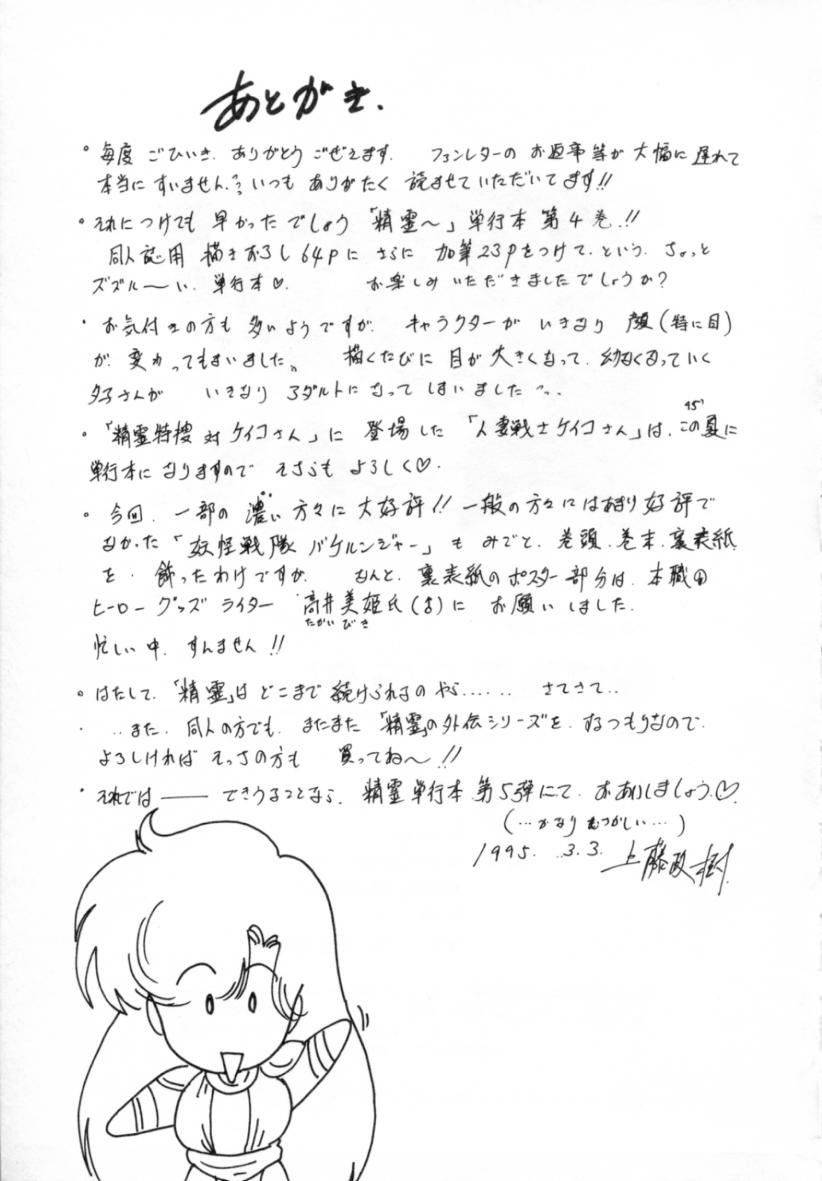 あとがき.
。毎度 ごひいき、ありがとう ごぜえます. ファンレターの お返事等が 大幅に 遅れて
本当に すいません。いつも ありがたく 読ませていただいてます!!
。それにつけても 早かったでしょう 「精霊〜」単行本 第4巻.!!
同人誌用 描きおろし 64Pに さらに 加筆23Pをつけて、という、ちょっと
ズズル〜い、単行本♡. お楽しみ いただきましたでしょうか?
・お気付きの方も 多いようですが、キャラクターが いきなり 顔(特に目)
が、変わってしまいました。 描くたびに 目が 大きくなって、幼くなっていく
タ子さんが いきなり アダルトになって しまいました…
。「精霊特捜 対 ケイコさん」に 登場した「人妻戦士ケイコさん」は、この夏に
'95
単行本になりますので そちらも よろしく♡.
。今回、一部の 濃い 方々に 大好評!! 一般の方々には あまり 好評で
なかった 「妖怪戦隊 バケルンジャー」も みごと、巻頭、巻末、裏表紙
を 飾ったわけですが、 なんと、裏表紙のポスター部分は、本職の
ヒーロー グッズ ライター 高井美姫氏(♀)に お願いしました.
たかい びき
忙しい中、すんません!!
。はたして、「精霊」は どこまで 続けられるのやら…… さてさて‥
・‥また、同人の方でも、またまた「精霊」の外伝シリーズを、するつもりなので、
よろしければ そっちの方も 買ってね〜!!
・それでは―― できうることなら、精霊単行本 第5弾にて、おあいしましょう♡.
(…かなり むつかしい…)
1995. 3.3. 上藤政樹